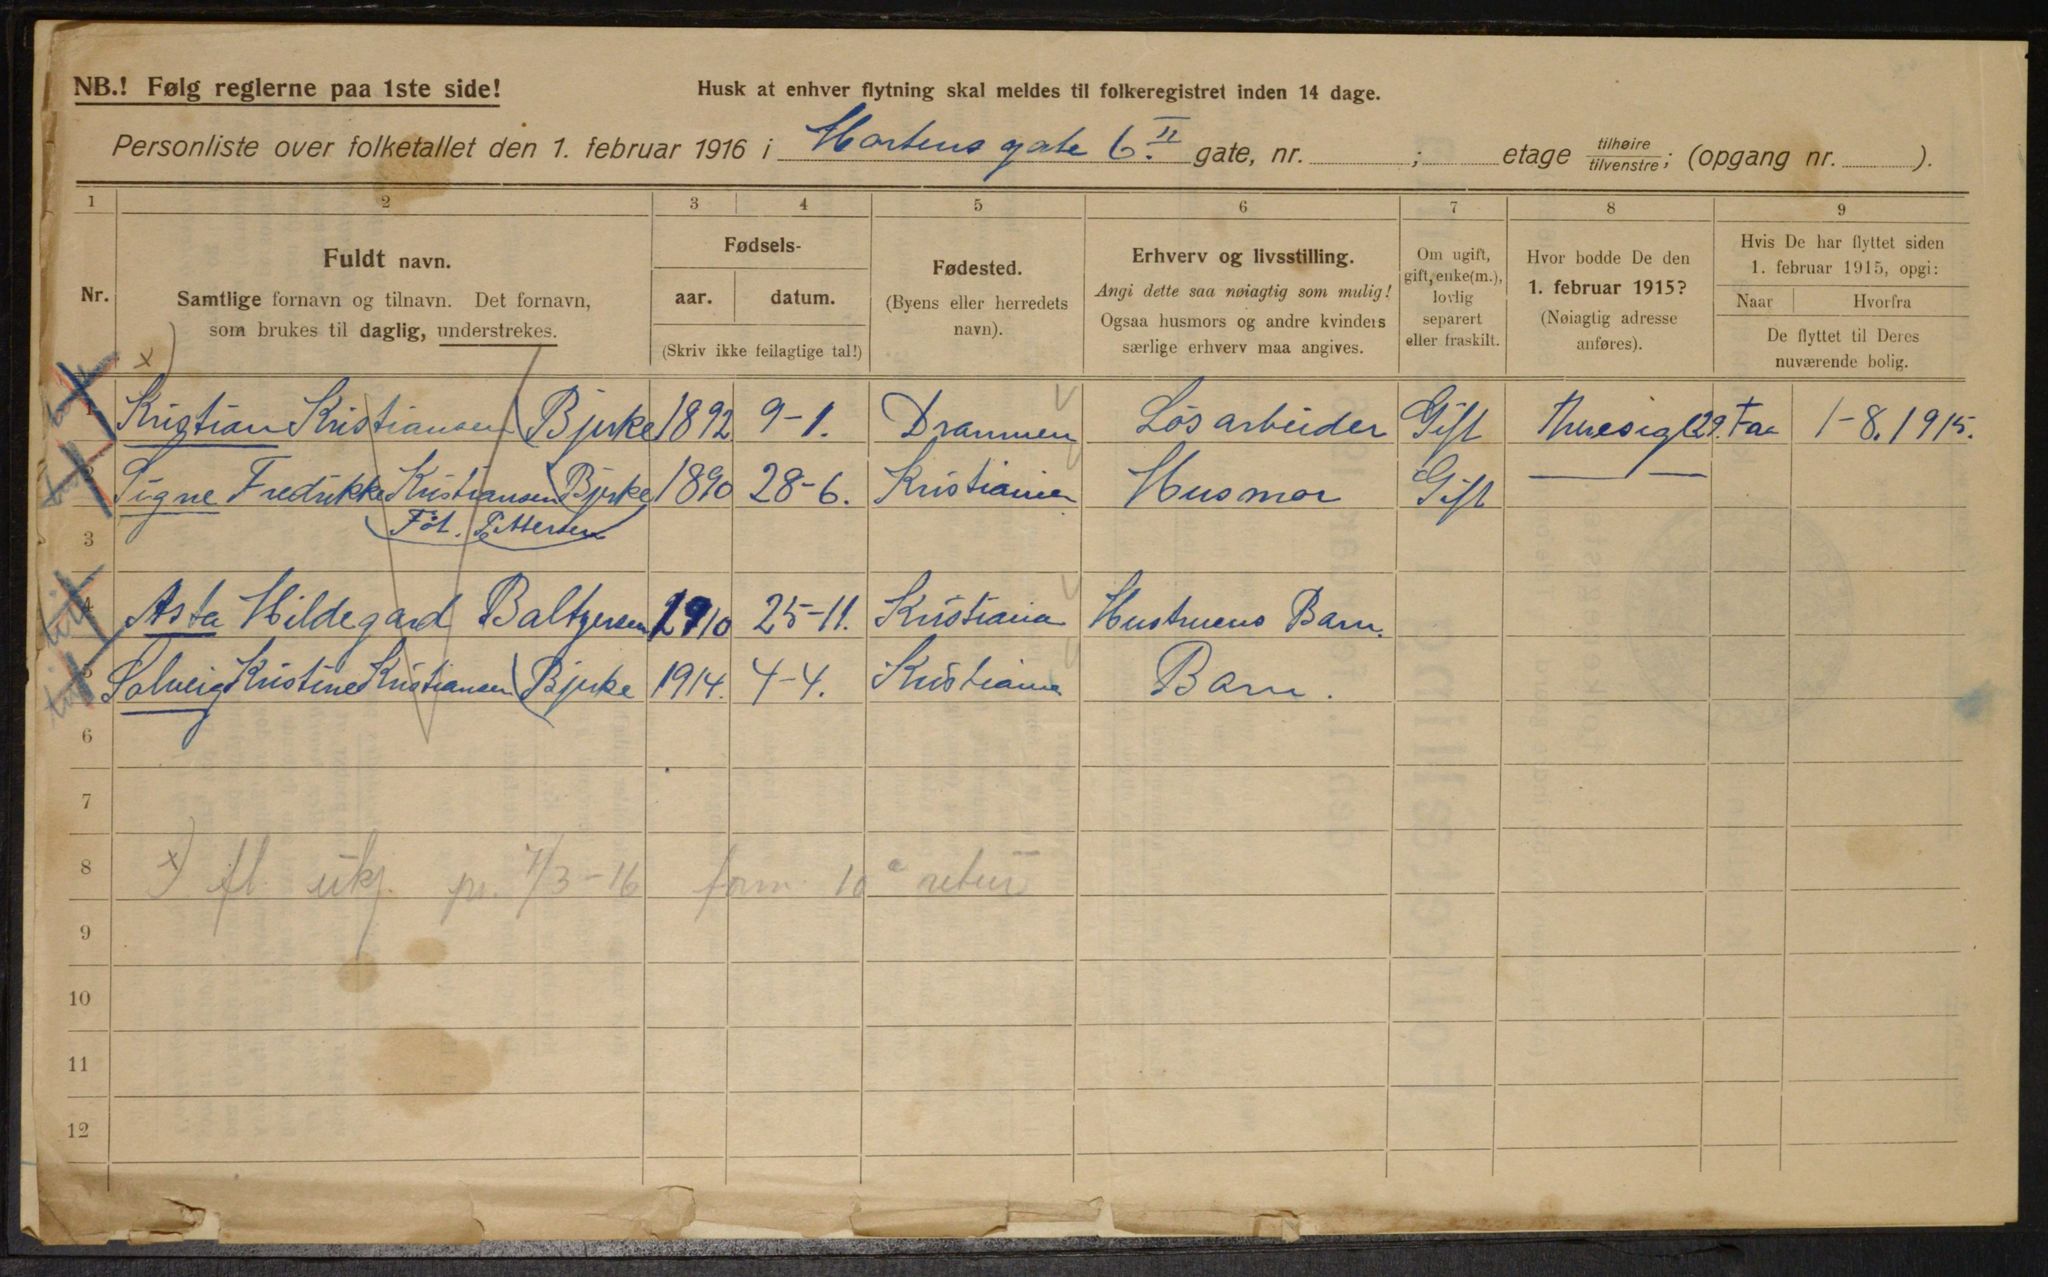 NB.! Følg reglerne paa 1ste side!
Husk at enhver flytning skal meldes til folkeregistret inden 14 dage.
Personliste over folketallet den 1. februar 1916 i Mortens gate 6 II. gate, nr. ; etage tilhøire tilvenstre; (opgang nr. ).
1 2 3 4 5 6 7 8 9
Nr.
Fuldt navn.
Samtlige fornavn og tilnavn. Det fornavn,
som brukes til daglig, understrekes.
Fødsels-
aar. datum.
(Skriv ikke feilagtige tal!)
Fødested.
(Byens eller herredets
navn).
Erhverv og livsstilling.
Angi dette saa nøiagtig som mulig!
Ogsaa husmors og andre kvinders
særlige erhverv maa angives.
Om ugift,
gift, enke(m.),
lovlig
separert
eller fraskilt.
Hvor bodde De den
1. februar 1915?
(Nøiagtig adresse
anføres).
Hvis De har flyttet siden
1. februar 1915, opgi:
Naar Hvorfra
De flyttet til Deres
nuværende bolig.
x)
1 Kristian Kristiansen (Bjerke 1892 9-1. Drammen Løsarbeider Gift 1-8. 1915.
2 Signe Fredrikke Kristiansen (Bjerke 1890 28-6. Kristiania Husmor Gift — —
3 Føt. Pettersen
4 Asta Hildegard Baltzersen 1910 25-11. Kristiania Hustruens Barn.
5 Solveig Kristine Kristiansen (Bjerke 1914. 4-4. Kristiania Barn.
6
7
8 x) fl. pr. 7/3-16 form. 10 retur
9
10
11
12